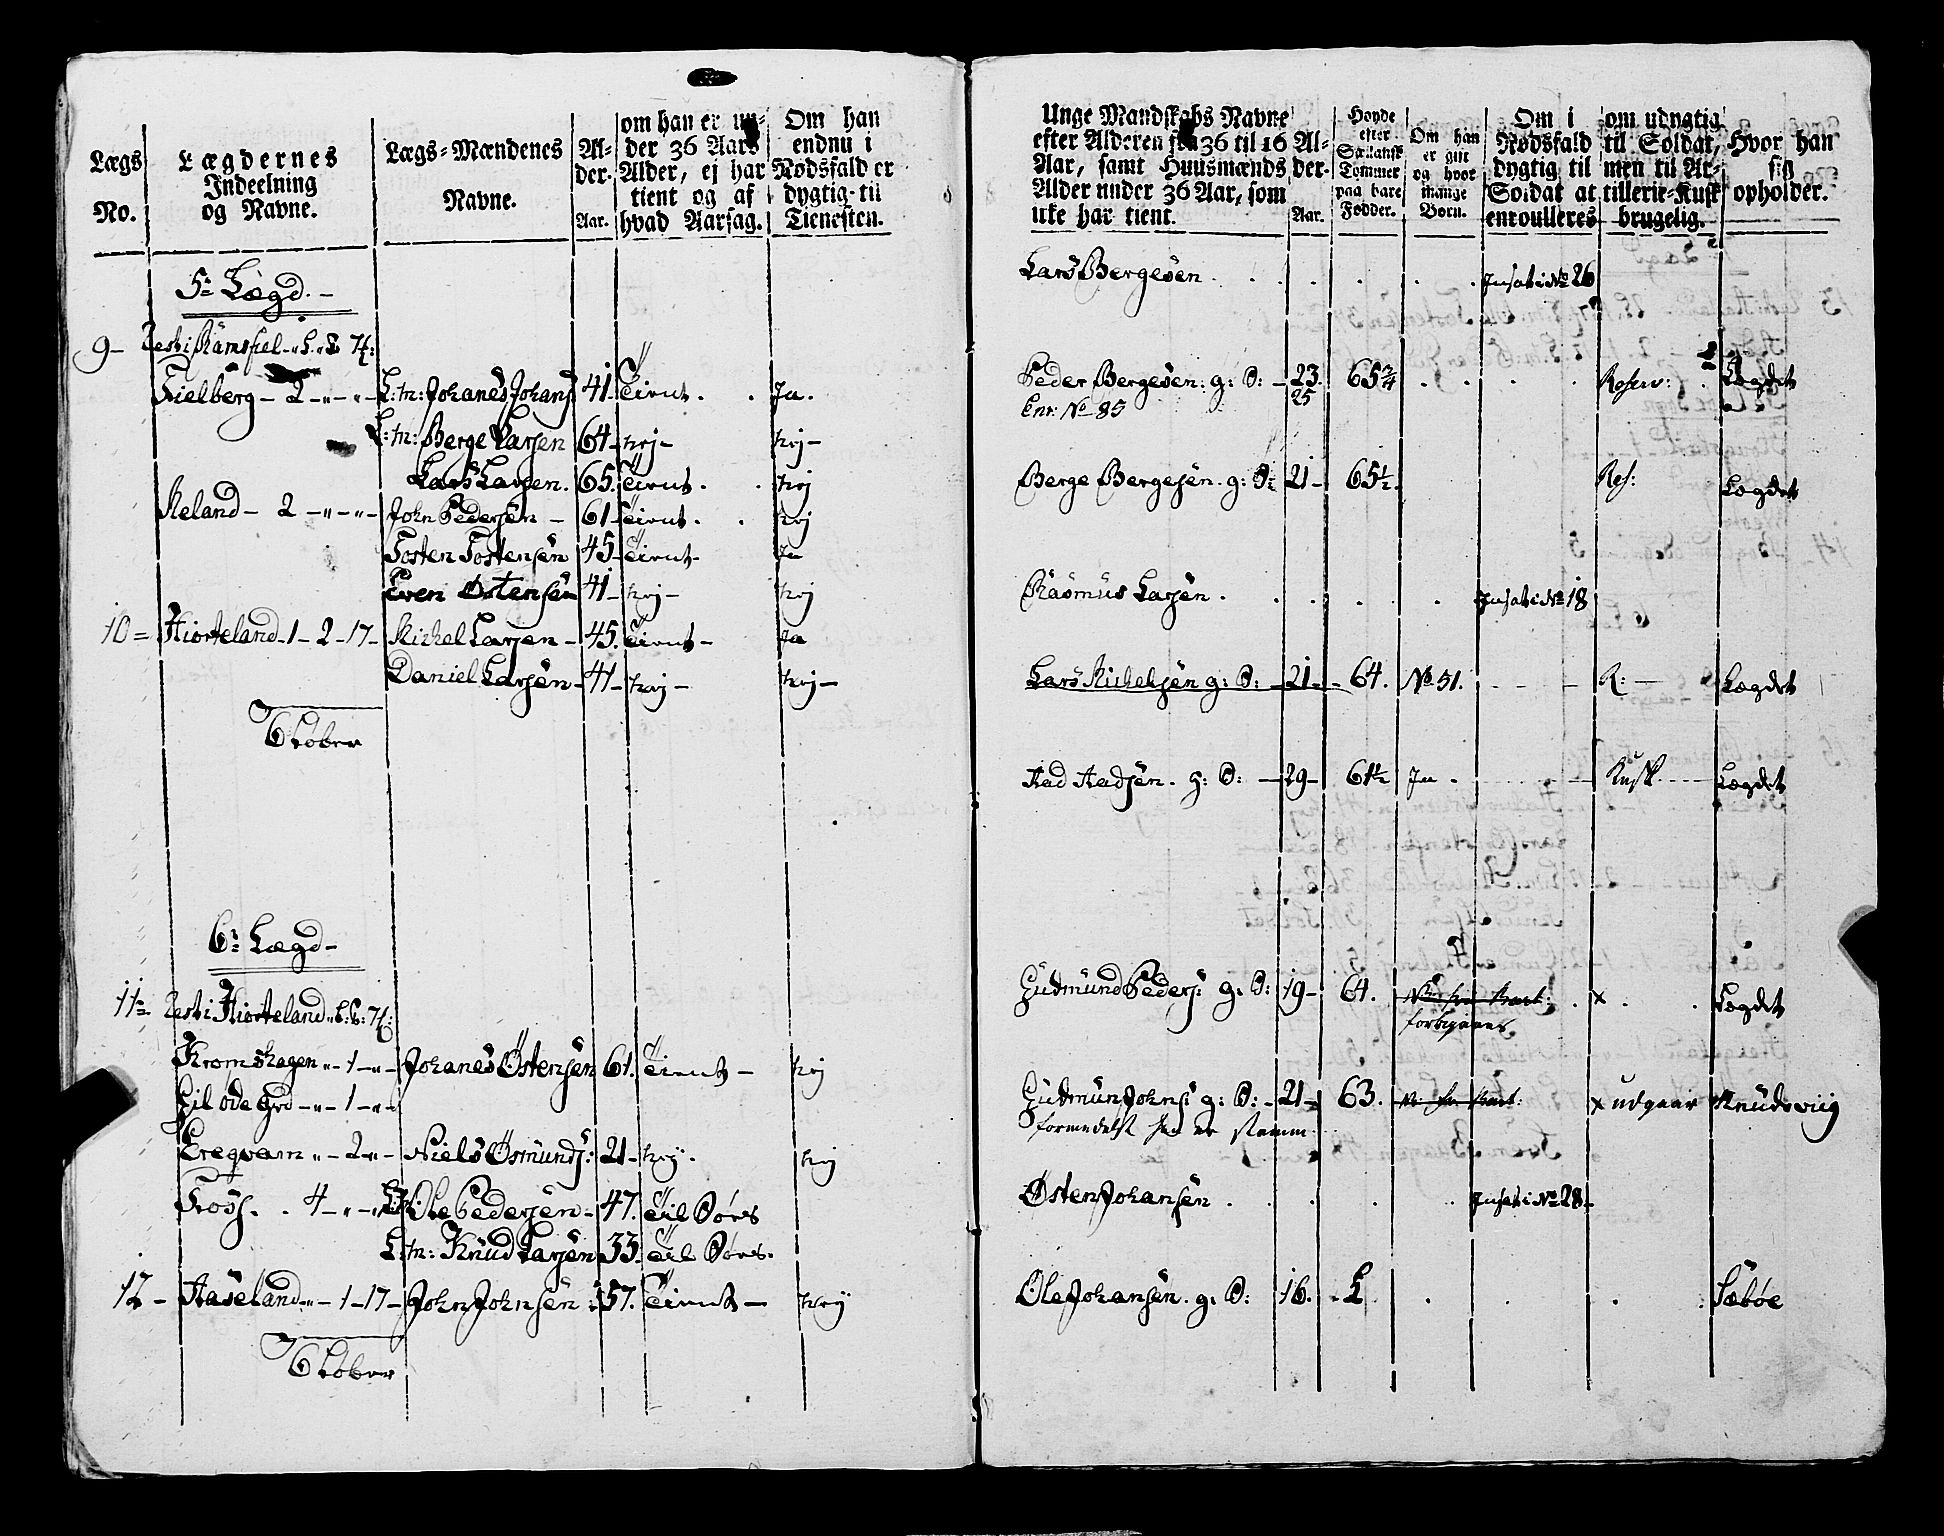 Lægs No.
Lægdernes Indeelning og Navne.
Lægs-Mændenes Navne.
Alder. Aar.
om han er under 36 Aars Alder, ej har tient og af hvad Aarsag.
Om han endnu i Nødsfald er dygtig til Tienesten.
5te Lægd.
9 - Rest i Ramsfiel
Fielberg - 2 - " - " - L:m: Johanes Johans 41. Tient. Ja.
L:m: Berge Larsen 64 - nej - nej -
Lars Larsen. 65. Tient. nej
Aeland - 2 - " - " - John Pedersen - 61 - Tient. nej
Tosten Tostensen 45 - Tient - Ja
Even Østensen 41 - nej - nej
10 = Hiorteland - 1 - 2 - 17 - Michel Larsen - 45. Tient - Ja
Daniel Larsen - 41 - nej - nej -
6te Lægd -
11 = Rest i Hiorteland
Kromshagen " - 1 - " - Johanes Østensen 61. Tient - nej
Øde Grd - " - 1 - " -
" - 2 - " - Niels Osmunds: 21 - nej. nej
Fross. 4 - " - " Ole Pedersen - 47. Til Søes
L:m: Knud Larsen 33. Til Søes.
12 - Aaseland - " - 1 - 17 - John Johnsen 57. Tient - nej
Unge Mandskabs Navne efter Alderen fra 36 til 16 Aar, samt Huusmænds Alder under 36 Aar, som ikke har tient.
Alder. Aar.
Høyde efter Siællansk Tommer paa bare Fødder.
Om han er gift og hvor mange Børn.
Om i Nødsfald dygtig til Soldat at enroulleres
om udygtig til Soldat, men til Artillerie-Kusk brugelig.
Hvor han sig opholder.
Lars Bergesen. Insat i No 26
Peder Bergesen: g: S: - 23. 65 3/4 Reserv: Lægdet
Enr: No 85 25
Berge Bergesen. g: S: 21 - 65 1/2. Res: Lægdet
Rasmus Larsen. Insat i No 18
Lars Michelsen g: S: - 21 - 64. No 51. R: - Lægdet
Aad Aadsen. g: S: - 29 - 61 1/2 Ja. Kusk. Lægdet
Gudmund Peders: g: S: 19 - 64. x Lægdet
forbigaaes
Gudmun Johns: g: S: - 21 - 63. x udgaar Knudsviig
formedelst han er stamm
Østen Johansen. Insat i No 28 -
Ole Johansen. g: S: 16. Søbøe